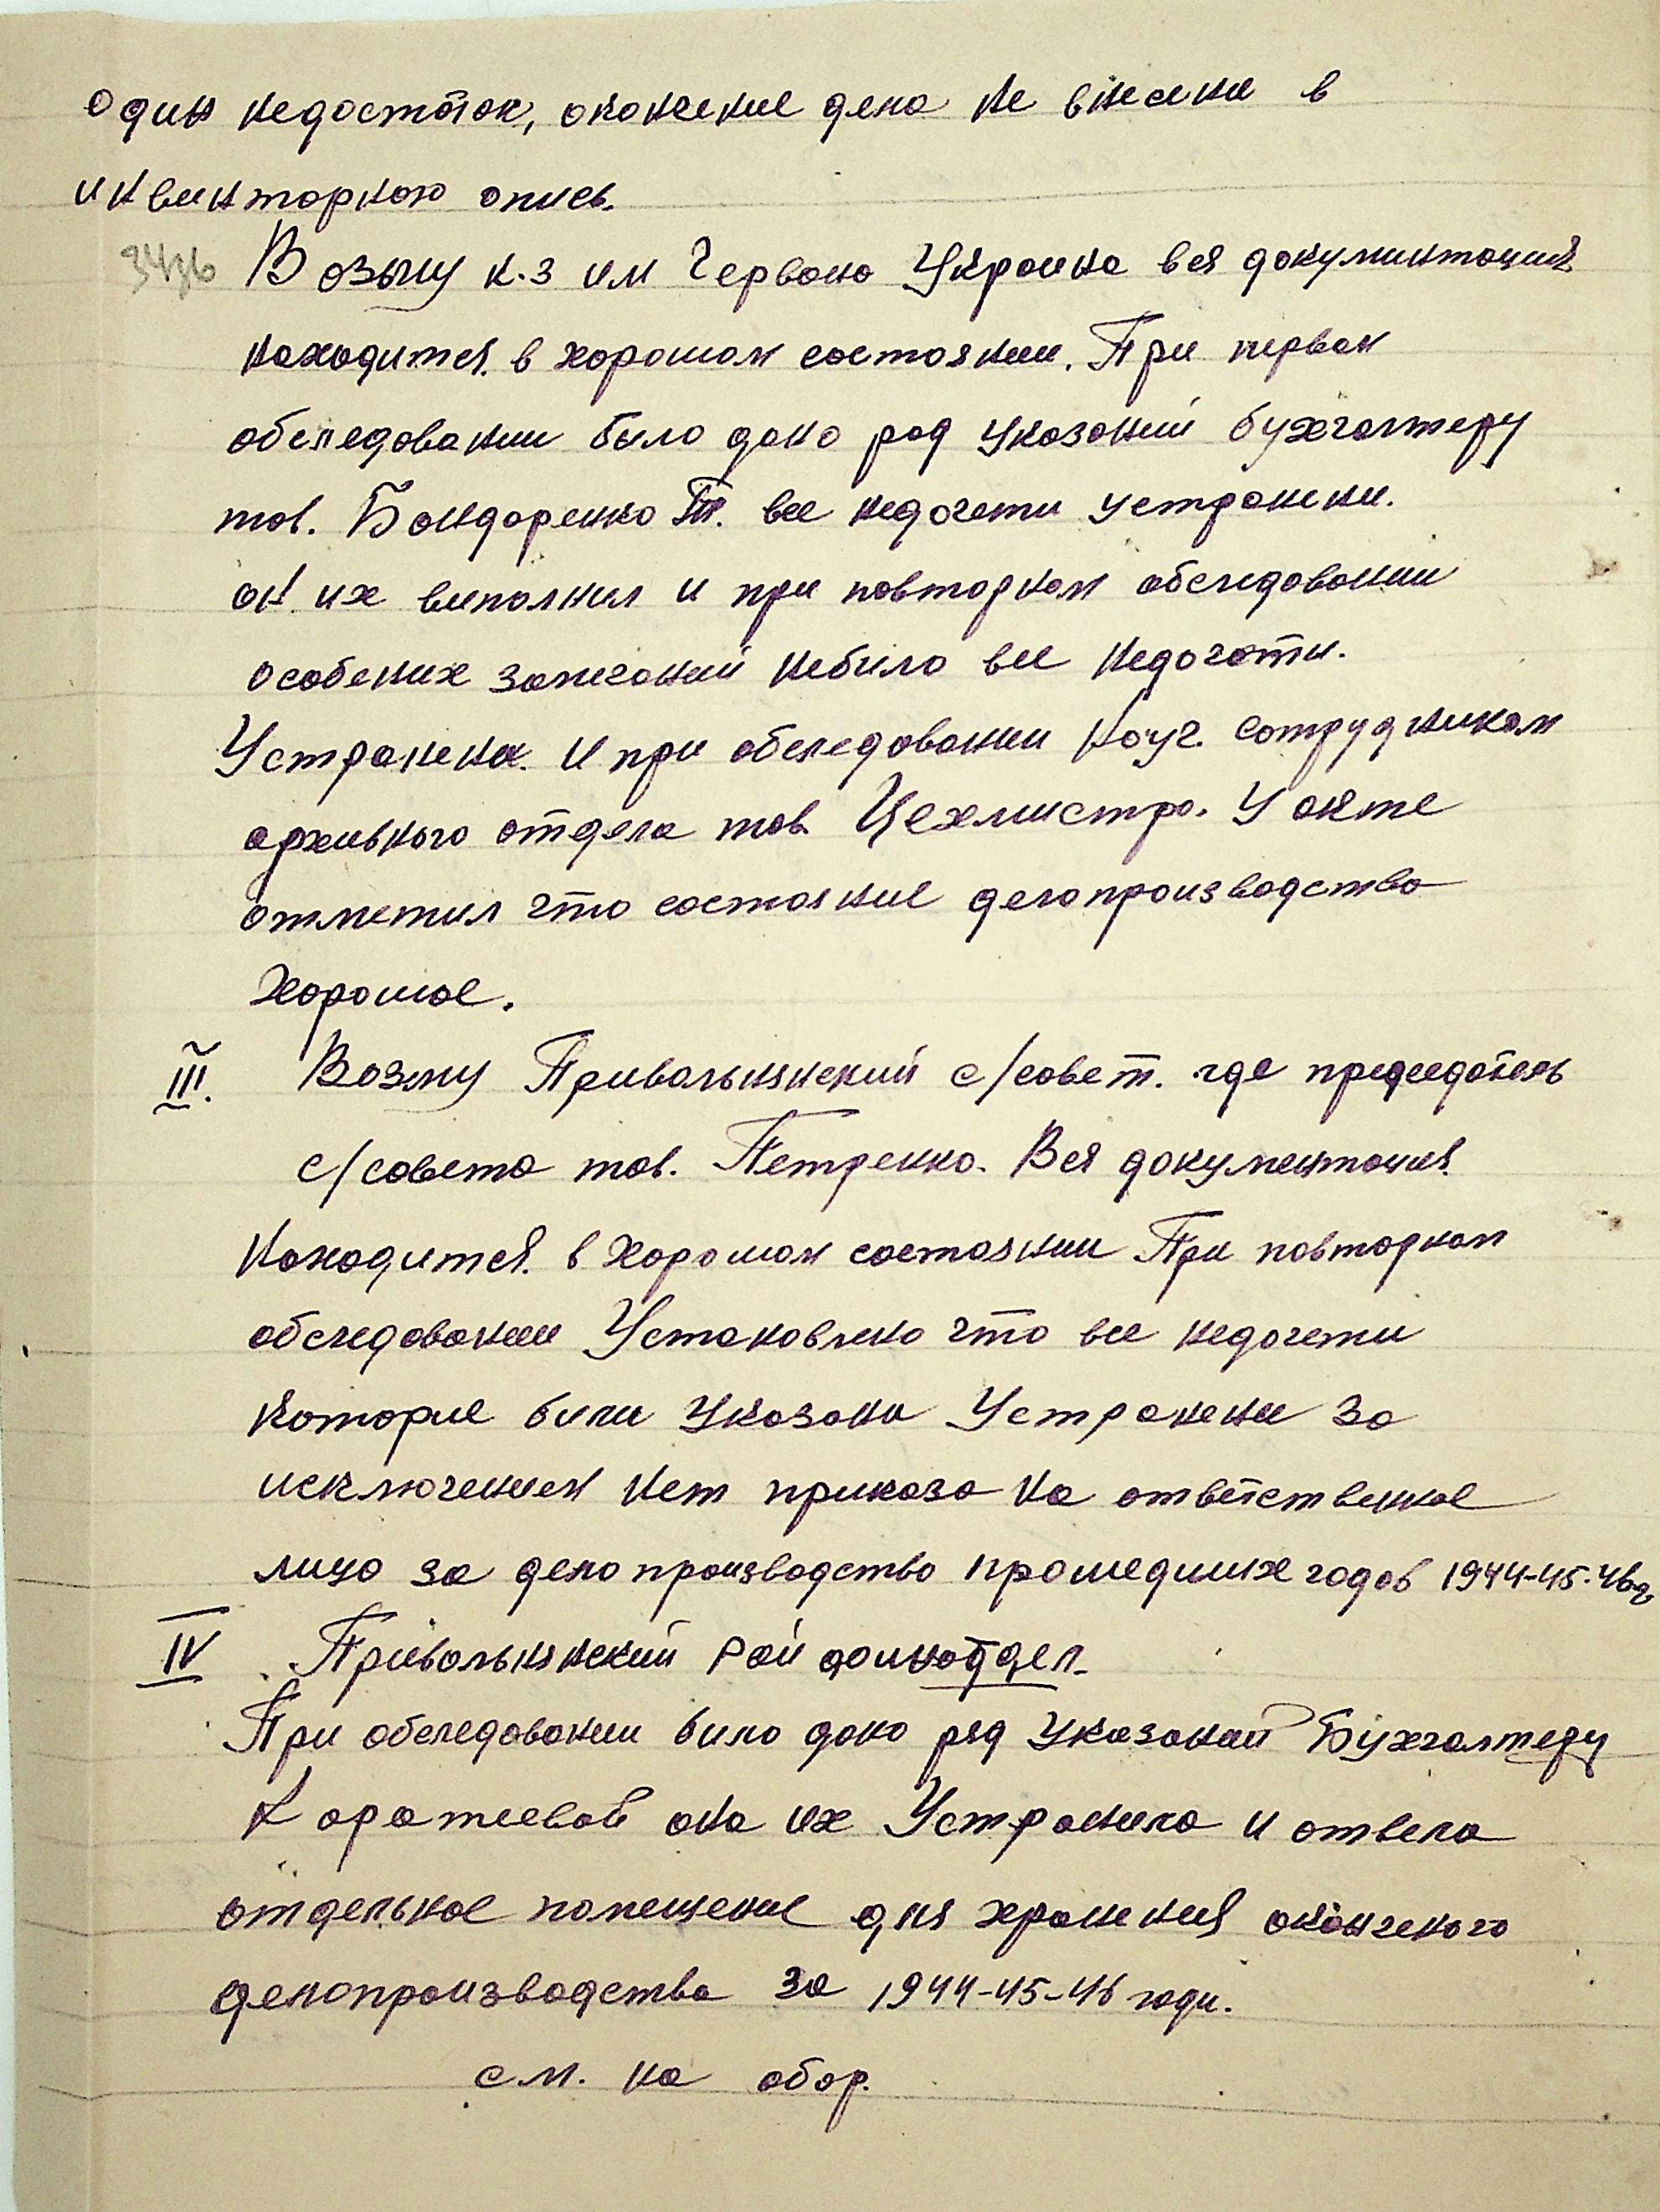 один недостаток, окончение дела не внесени в
инвинторною опись.
Возьму к.з им Червоно Украина вся документация
находится в хорошом состоянии. При первом
обследовании было дано ряд указаний бухгалтеру
тов. Бондаренко Т. все недочети устранени.
он их виполнил и при повторном обследовании
особених замечаний небило все недочоти.
Устранени. И при обследовании Науч. сотрудником
архивного отдела тов. Цехмистро. У акте
отметил что состояние делопроизводства
Хорошое.
III. Возму Привольнянский с/совет. где председатель
с/совета тов. Петренко. Вся документация
Находится в хорошом состоянии При повторном
обследовании Установлено что все недочети
которие били указани Устранени за
исключением нет приказа на ответственное
лицо за делопроизводство прошедших годов 1944-45-46гг
IV Привольнянский Рай
При обследовании било дано ряд указаний Бухгалтеру
Каратеевой она их Устранила и отвела
отдельное помещение для хранения оконченого
делопроизводства за 1944-45-46 годи.
см. на обор.